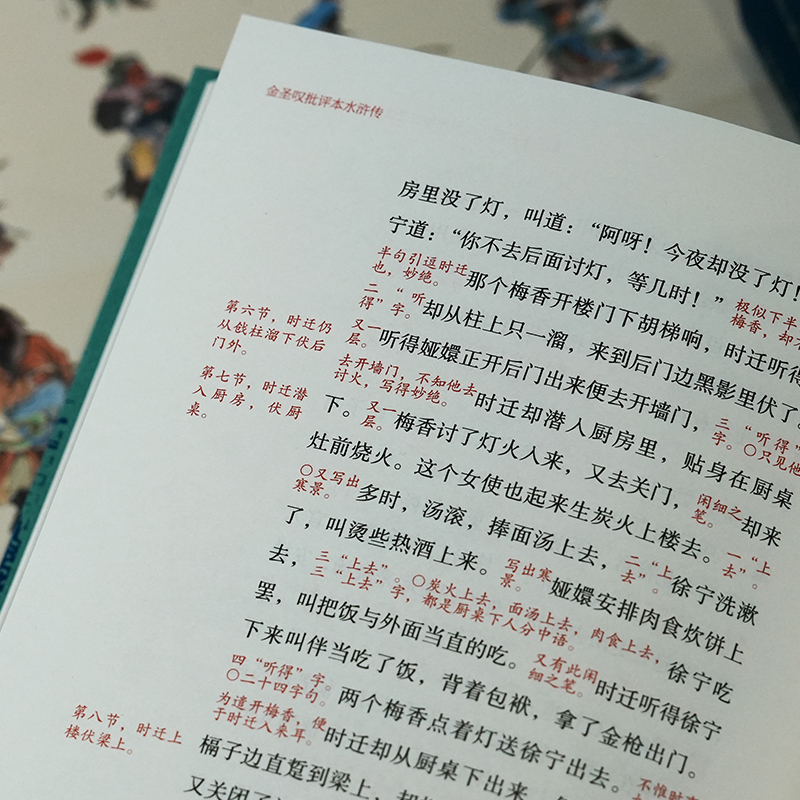 金圣叹批评本水浒传
房里没了灯，叫道：“阿呀！今夜却没了灯！
宁道：“你不去后面讨灯，等几时！”
半句引逗时迁
也，妙绝。
那个梅香开楼门下胡梯响，时迁听得
极似下半
梅香，却
二“听
得”字。
却从柱上只一溜，来到后门边黑影里伏了。
第六节，时迁仍
从戗柱溜下伏后
门外。
又一
层。
听得娅嬛正开后门出来便去开墙门，
三“听得”
字。〇只见他
去开墙门，不知他去
讨火，写得妙绝。
时迁却潜入厨房里，贴身在厨桌
第七节，时迁潜
入厨房，伏厨
桌。
下。
又一
层。
梅香讨了灯火入来，又去关门，
闲细之
笔。
却来
灶前烧火。这个女使也起来生炭火上楼去。
一“上
去”。
〇又写出
寒景。
多时，汤滚，捧面汤上去，
二“上
去”。
徐宁洗漱
了，叫烫些热酒上来。
写出寒
景。
娅嬛安排肉食炊饼上
去，
三“上去”。〇炭火上去，面汤上去，肉食上去，
三“上去”字，都是厨桌下人分中语。
徐宁吃
罢，叫把饭与外面当直的吃。
又有此闲
细之笔。
时迁听得徐宁
下来叫伴当吃了饭，背着包袱，拿了金枪出门。
四“听得”字。
〇二十四字句。
两个梅香点着灯送徐宁出去。
不惟时
为遣开梅香，便
于时迁入来耳。
时迁却从厨桌下出来，
第八节，时迁上
楼伏梁上。
槅子边直踅到梁上，
又关闭了